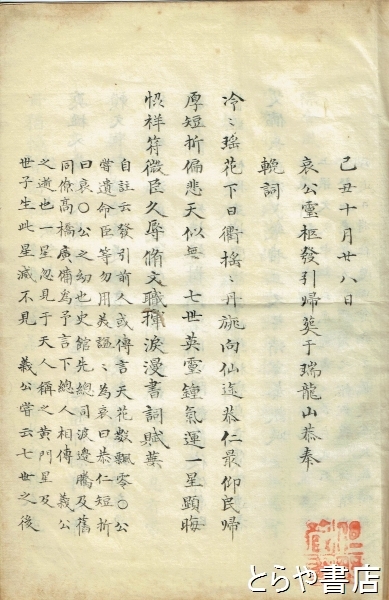 己丑十月廿八日
哀公靈柩發引歸葬于瑞龍山恭奉
輓詞
冷〻瑤花下日衢搖〻丹旐向仙迄恭仁最仰民歸
厚短折偏悲天似無　七世英靈鍾氣運一星顯晦
恠祥符微臣久辱脩文職揮淚漫書詞賦藁
自註云發引前人或傳言天花數飄零〇公
嘗遺命臣等勿用美謚〻為哀曰恭仁短折
曰哀〇公之幼也史館先總司渡邊騰及舊
同僚高橋廣備為予言下總人相傳　義公
之逝也一星忽見于天人稱之黄門星及
世子生此星滅不見　義公嘗云七世之後
とらや書店